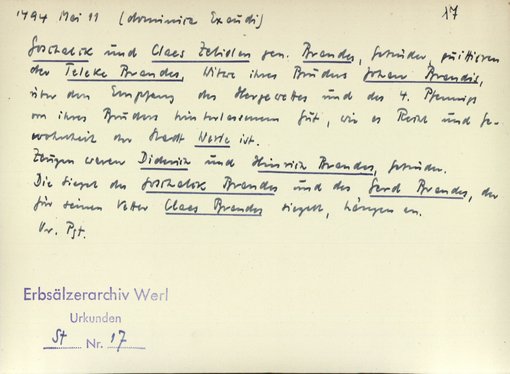 1494 Mai 11 (dominica Exaudi) 17
Goschalck und Claes Zeliolen gen. Brandes, Gebrüder, quittieren
der Teleke Brandes, Witwe ihres Bruders Johan Brandis,
über den Empfang des Hergewettes und des 4. Pfennigs
von ihres Bruders hinterlassenem Gut, wie es Recht und Ge-
wohnheit der Stadt Werle ist.
Zeugen waren Diderich und Hinrich Brandes, Gebrüder.
Die Siegel des Goschalck Brandes und des Gerd Brandes, der
für seinen Vetter Claes Brandes siegelt, hängen an.
Or. Pgt.
Erbsälzerarchiv Werl
Urkunden
St Nr. 17